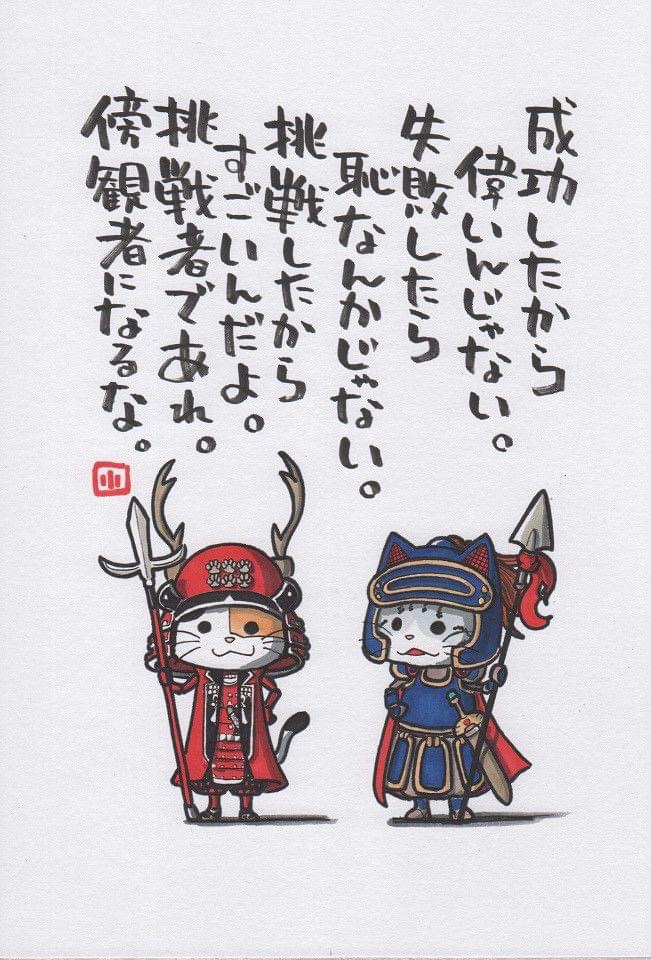 成功したから
偉いんじゃない。
失敗したら
恥なんかじゃない。
挑戦したから
すごいんだよ。
挑戦者であれ。
傍観者になるな。